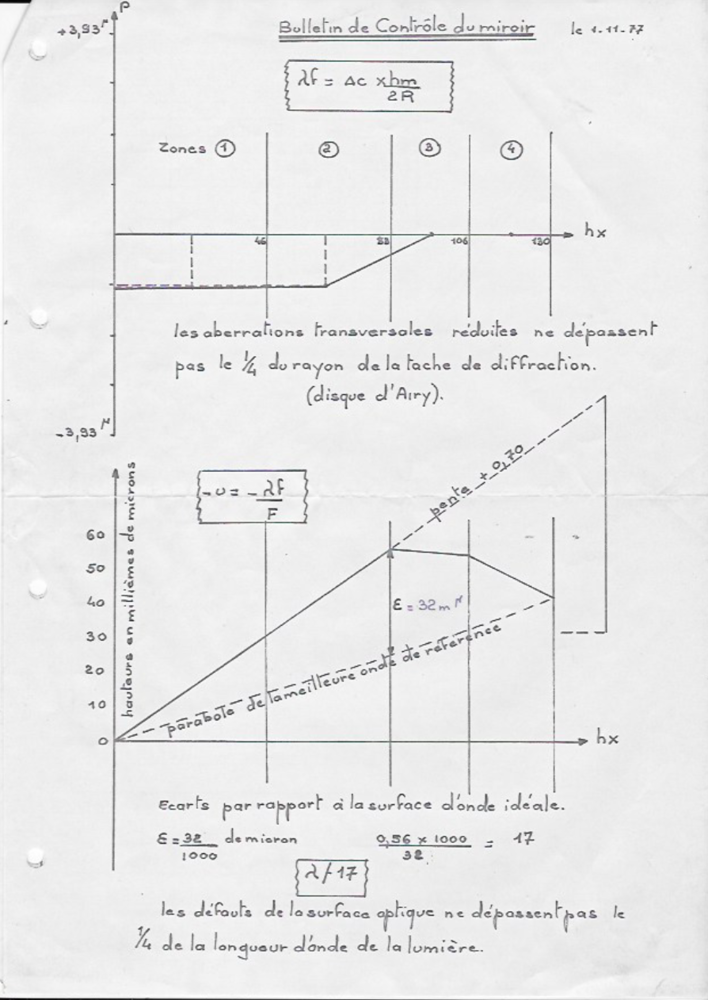 +3,93 µ
ρ
Bulletin de Contrôle du miroir
le 1.11.77
λf = Δc x hm
2R
Zones ① ② ③ ④
46 82 106 130 hx
les aberrations transversales réduites ne dépassent
pas le 1/4 du rayon de la tache de diffraction.
(disque d'Airy).
-3,93 µ
hauteurs en millièmes de microns
-u = - λf
F
pente + 0,70
60
50
40
30
20
10
0
ε = 32 m µ
parabole de la meilleure onde de référence
hx
Ecarts par rapport à la surface d'onde idéale.
ε = 32 de micron
1000
0,56 x 1000 = 17
32
λ/17
les défauts de la surface optique ne dépassent pas le
1/4 de la longueur d'onde de la lumière.